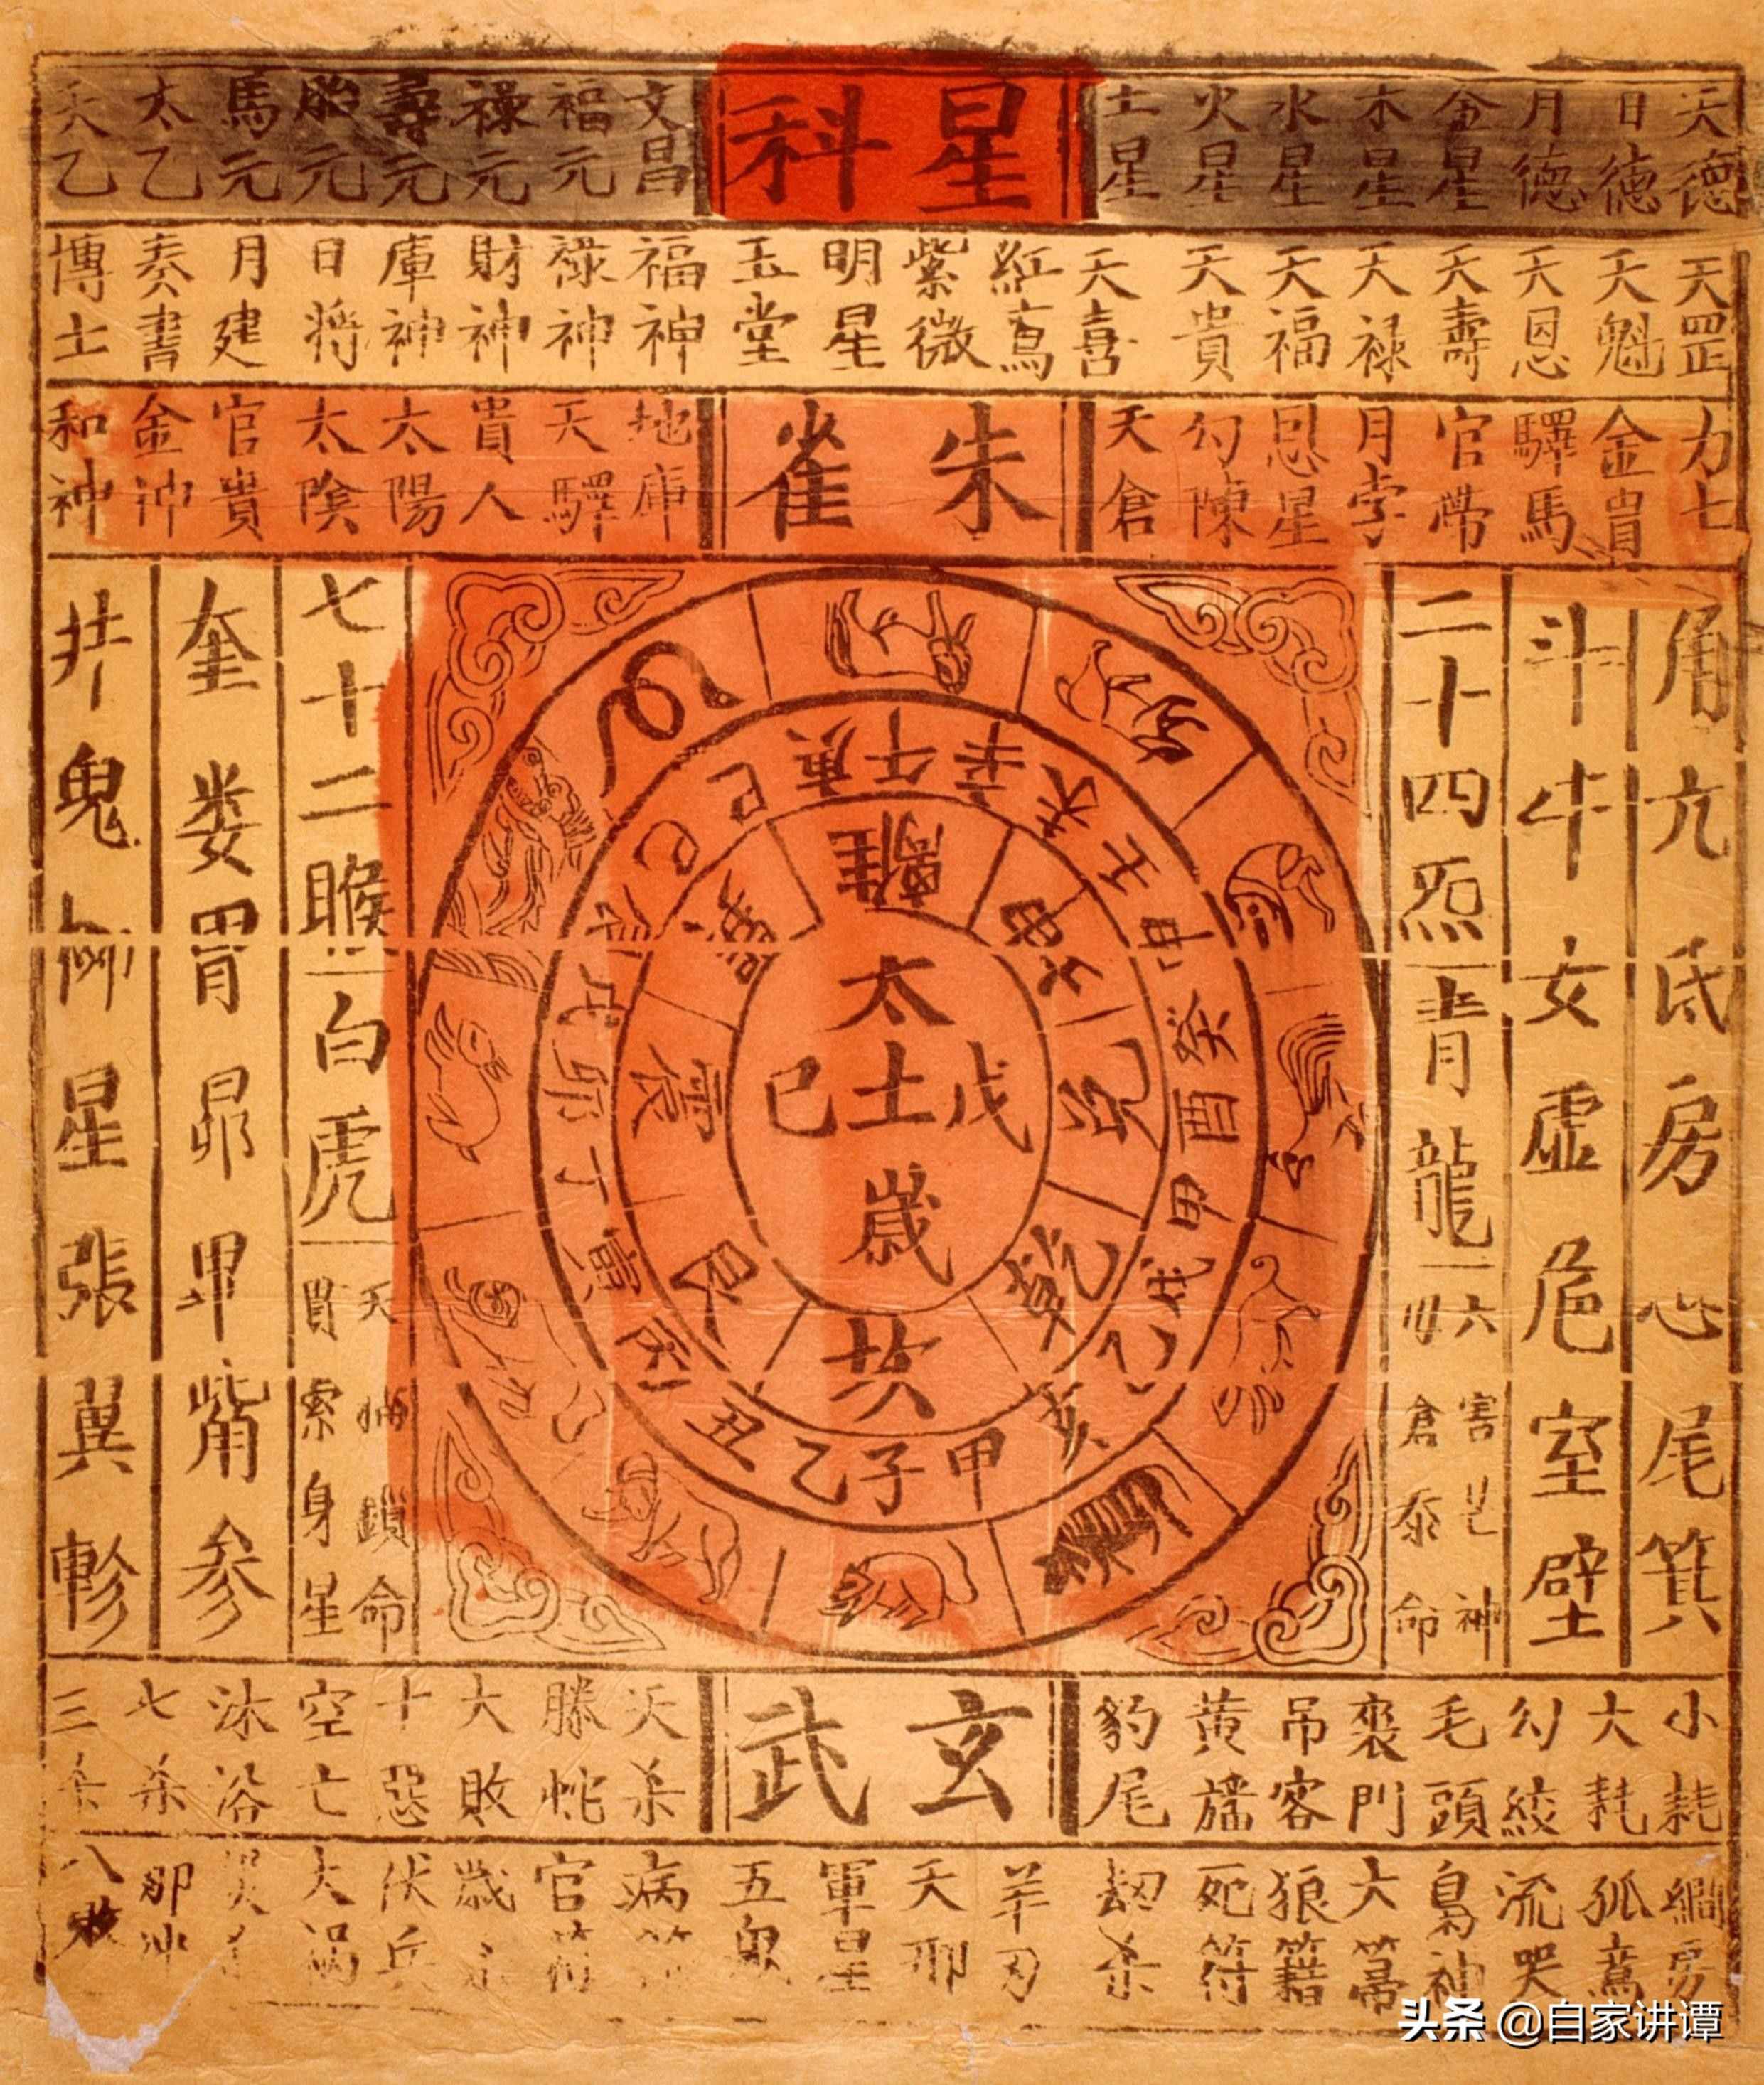 天德 日德 月德 金星 木星 水星 火星 土星 星科 文昌 福元 禄元 壽元 胎元 馬元 太乙 天乙
天罡 天魁 天恩 天壽 天禄 天福 天貴 天喜 紅鳶 紫微 明星 玉堂 福神 禄神 財神 庫神 日将 月建 奏書 博士
金貴 驛馬 官帶 月孛 恩星 勾陳 天倉 朱雀 地庫 天驛 貴人 太陽 太陰 官貴 金神 和神
角亢氐房心尾箕
斗牛女虛危室壁
二十四炁
青龍
六害 神
倉泰命
離坤兑乾坎艮震巽
庚午辛
壬申
癸酉
戌乙亥
甲子乙丑
丙寅丁卯戊辰
己巳
太歲
戊土己
七十二睺
白虎
天 鎖命
貫索身星
奎娄胃昴畢觜参
井鬼柳星張翼軫
小耗 大耗 勾絞 毛頭 喪門 吊客 黄旛 豹尾 玄武 天杀 螣蛇 大敗 十惡 空亡 沐浴 七杀 三杀
孤鳶 流哭 狼籍 死符 劫杀 羊刃 天耶 軍星 五鬼 病符 官符 歲 伏兵 大禍 八敗
头条 @自家讲谭